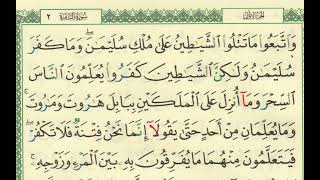 الجزء الأول ٢ سورة البقرة
وَٱتَّبَعُوا۟ مَا تَتْلُوا۟ ٱلشَّيَٰطِينُ عَلَىٰ مُلْكِ سُلَيْمَٰنَ ۖ وَمَا كَفَرَ
سُلَيْمَٰنُ وَلَٰكِنَّ ٱلشَّيَٰطِينَ كَفَرُوا۟ يُعَلِّمُونَ ٱلنَّاسَ
ٱلسِّحْرَ وَمَآ أُنزِلَ عَلَى ٱلْمَلَكَيْنِ بِبَابِلَ هَٰرُوتَ وَمَٰرُوتَ ۚ
وَمَا يُعَلِّمَانِ مِنْ أَحَدٍ حَتَّىٰ يَقُولَآ إِنَّمَا نَحْنُ فِتْنَةٌ فَلَا تَكْفُرْ ۖ
فَيَتَعَلَّمُونَ مِنْهُمَا مَا يُفَرِّقُونَ بِهِۦ بَيْنَ ٱلْمَرْءِ وَزَوْجِهِۦ ۚ